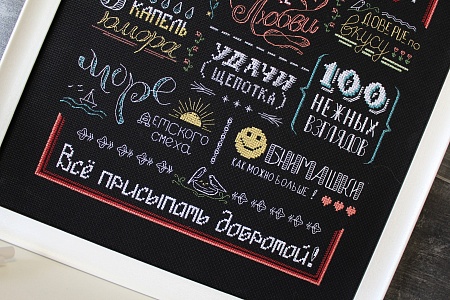 5 КАПЕЛЬ
юмора
Любви
ДОВЕРИЕ по
вкусу
УДАЧИ
(ЩЕПОТКА)
100
НЕЖНЫХ
ВЗГЛЯДОВ
море
ДЕТСКОГО
смеха
ВНИМАШКИ
КАК МОЖНО БОЛЬШЕ!
Всё присыпать добротой!